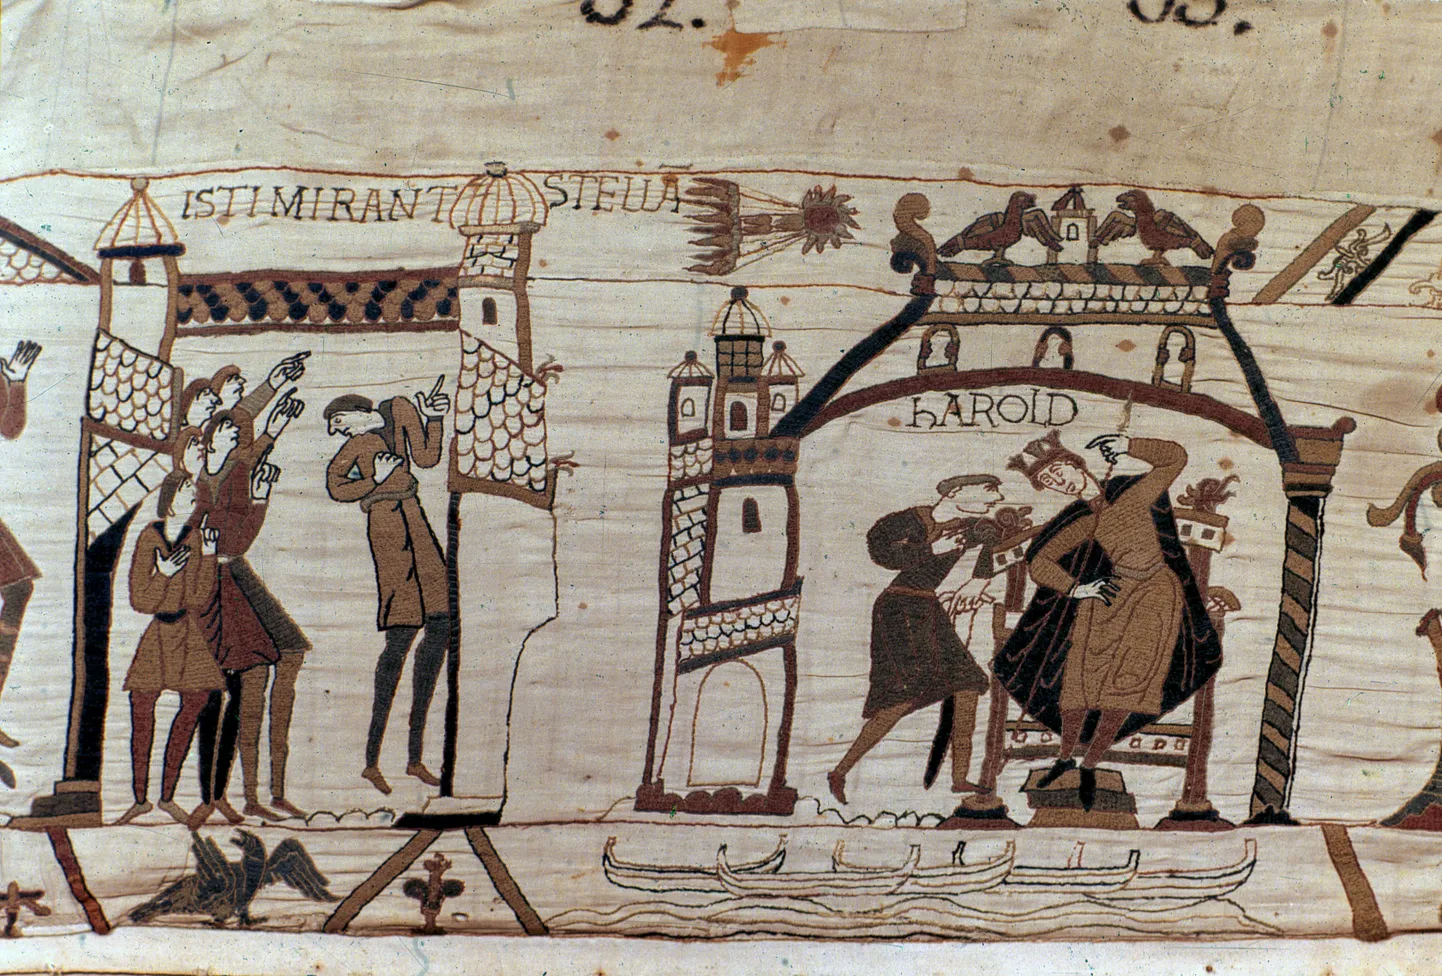 32.
33.
ISTI MIRANT STELLĀ
hAROLD